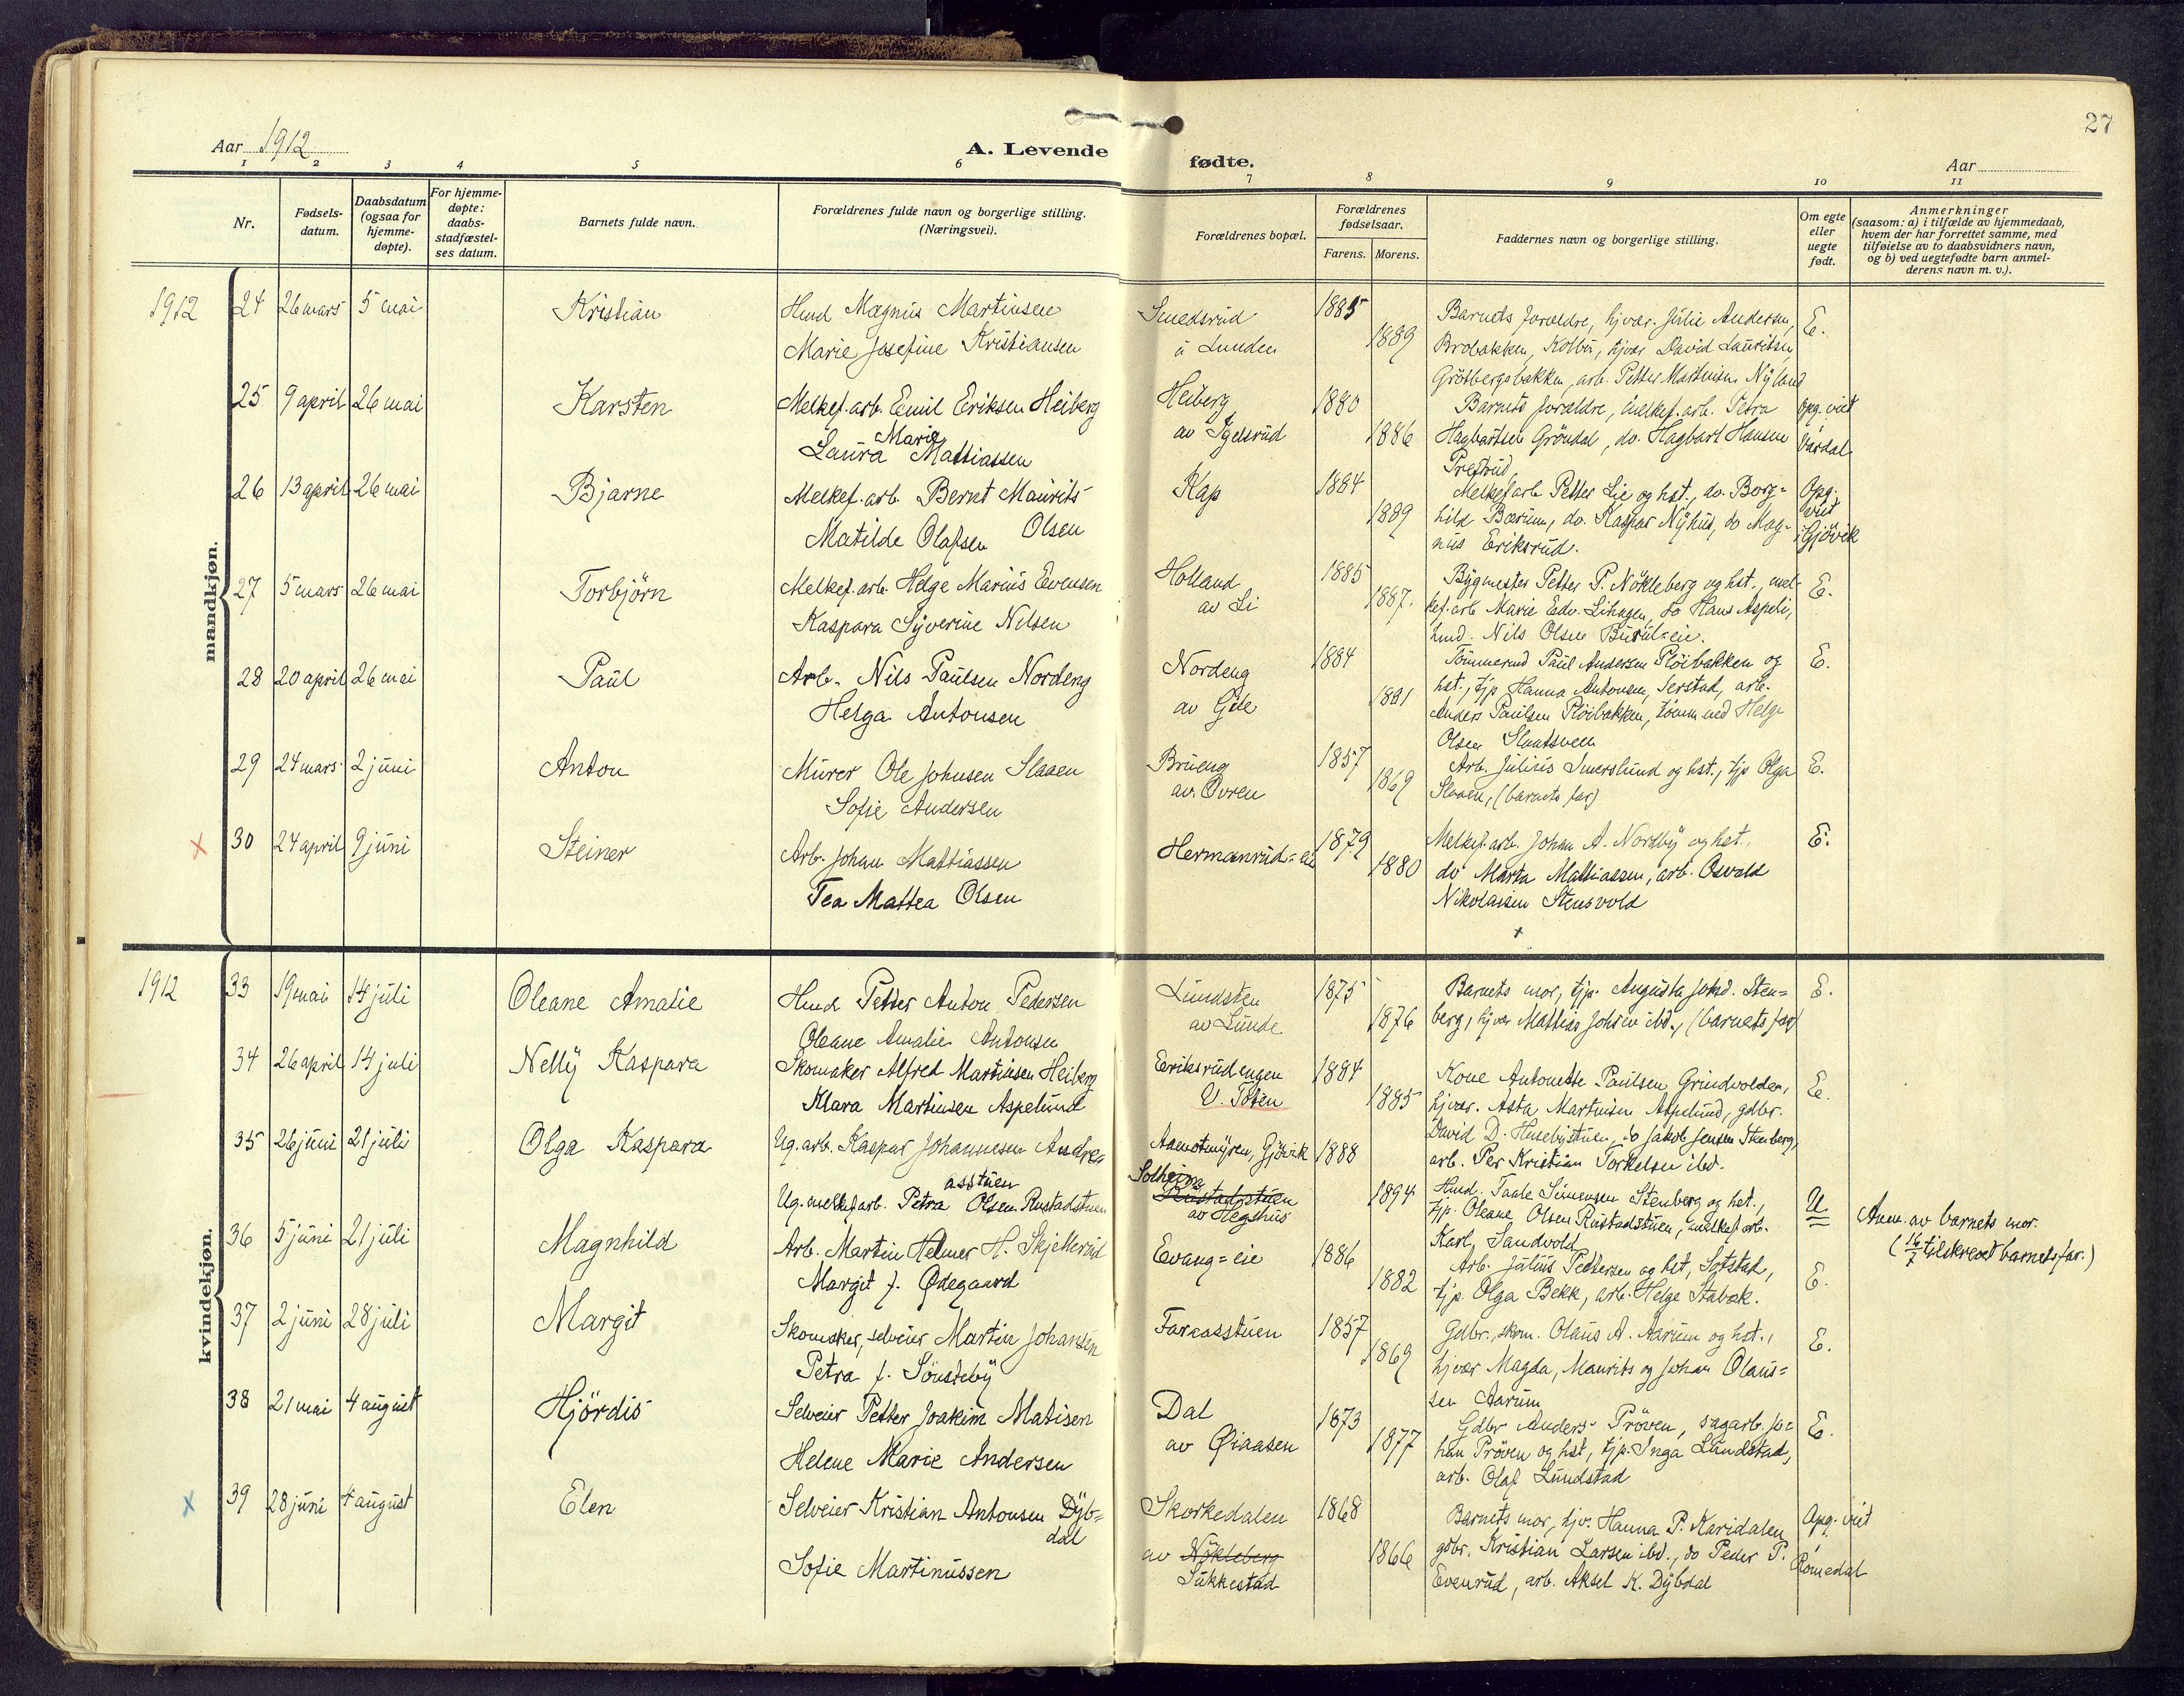 27
Aar 1912
A. Levende fødte.
Aar
1 2 3 4 5 6 7 8 9 10 11
Nr.
Fødsels-
datum.
Daabsdatum
(ogsaa for
hjemme-
døpte).
For hjemme-
døpte:
daabs-
stadfæstel-
ses datum.
Barnets fulde navn.
Forældrenes fulde navn og borgerlige stilling.
(Næringsvei).
Forældrenes bopæl.
Forældrenes
fødselsaar.
Farens. Morens.
Faddernes navn og borgerlige stilling.
Om egte
eller
uegte
født.
Anmerkninger
(saasom: a) i tilfælde av hjemmedaab,
hvem der har forrettet samme, med
tilføielse av to daabsvidners navn,
og b) ved uegtefødte barn anmel-
derens navn m. v.).
mandkjøn.
1912 24 26 mars 5 mai Kristian
Hmd Magnus Martinsen
Marie Josefine Kristiansen
Smedsrud
u Lunden
1885
1889
Barnets forældre, hjvær. Julie Andersen,
Brobakken, Kolbu, hjvær David Lauritsen
Grötbergsbakken, arb. Petter Martinsen Nyland
E.
25 9 april 26 mai Karsten
Melkef. arb. Emil Eriksen Heiberg
Marie
Laura Mattiassen
Heiberg
av Igelsrud
1880
1886
Barnets forældre, melkef. arb. Petra
Hagbartsen Gröndal, do. Hagbart Hansen
Prestrud
Opg. viet
i Vardal
26 13 april 26 mai Bjarne
Melkef. arb. Bernt Maurits
Olsen
Matilde Olafsen
Kap
1884
1889
Melkef arb Petter Lie og hst., do. Borg=
hild Bærum, do. Kaspar Nyhus, do Mag-
nus Eriksrud.
Opg.
viet
i Gjövik
27 5 mars 26 mai Torbjörn
Melkef. arb. Helge Marius Evensen
Kaspara Syverine Nilsen
Holland
av Li
1885
1887.
Bygmester Petter P. Nökleberg og hst., mel-
kef. arb Marie Edv. Lihagen, do Hans Aspeli,
hmd. Nils Olsen Burul=eie.
E.
28 20 april 26 mai Paul
Arb. Nils Paulsen Nordeng
Helga Antonsen
Nordeng
av Gile
1884
1891
Tömmermd Paul Andersen Plöibakken og
hst., tjp Hanna Antonsen, Serstad, arb.
Anders Paulsen Plöibakken, tömmermd Helge
Olsen Slaatsveen
E.
29 24 mars 2 juni Anton
Murer Ole Johnsen Slaaen
Sofie Andersen
Brueng
av Övren
1857
1869
Arb. Julius Smerslund og hst., tjp Olga
Slaaen, (barnets far)
E.
30 24 april 9 juni Steiner
Arb. Johan Mattiassen
Tea Mattea Olsen
Hermanrud=eie
1879
1880
Melkef. arb. Johan A. Nordby og hst.,
do Marta Mattiassen, arb. Osvald
Nikolaisen Stensvold
E.
kvindekjøn.
1912 33 19 mai 14 juli Oleane Amalie
Hmd Petter Anton Pedersen
Oleane Amalie Antonsen
Lundsten
av Lunde
1875
1876
Barnets mor, tjp. Augusta Johsd. Sten=
berg, hjvær Mattias Johsen ibd., (barnets far)
E.
34 26 april 14 juli Nelly Kaspara
Skomaker Alfred Martinsen Heiberg
Klara Martinsen Aspelund
Eeriksrudengen
V. Toten
1884
1885
Kone Antonette Paulsen Grindvolden,
hjvær. Asta Martinsen Aspelund, gdbr.
David D. Husebystuen, do Jakob Jensen Stenberg,
arb. Per Kristian Torkelsen ibd.
E.
35 26 juni 21 juli Olga Kaspara
Ug. arb. Kaspar Johannesen Andre=
asstuen
Ug. melkef arb. Petra Olsen Rustadstuen
Aamotmyren, Gjövik
Solheim
Rustadstuen
av Hegshus
1888
1894
Hmd. Taale Simensen Stenberg og hst.,
tjp. Oleane Olsen Rustadstuen, melkef arb.
Karl Sandvold
U
Anm. av barnets mor.
(16/7 tilskrevet barnets far.)
36 5 juni 21 juli Magnhild
Arb. Martin Helmer H. Skjellerud
Margit f. Ødegaard
Evang=eie
1886
1882
Arb. Julius Pettersen og hst, Sotstad,
tjp. Olga Bekk, arb. Helge Stabæk.
E.
37 2 juni 28 juli Margit
Skomaker, selveier Martin Johansen
Petra f. Sönsteby
Faraasstuen
1857
1869
Gdbr., skom. Olaus A. Aarum og hst.,
hjvær Magda, Maurits og Johan Olaus=
sen Aarum
E.
38 21 mai 4 august Hjördis
Selveier Petter Joakim Matisen
Helene Marie Andersen
Dal
av Øiaasen
1873
1877
Gdbr Anders Pröven, sagarb. Jo=
han Pröven og hst, tjp. Inga Lundstad,
arb. Olaf Lundstad
E.
39 28 juni 4 august Elen
Selveier Kristian Antonsen Dyb=
dal
Sofie Martinussen
Skorkedalen
av Nökleberg
Sukkestad
1868
1866
Barnets mor, hjv. Hanna P. Karidalen
gdbr. Kristian Larsen ibd., do Peder P.
Evenrud, arb. Aksel K. Dybdal
Opg. viet
i
Romedal